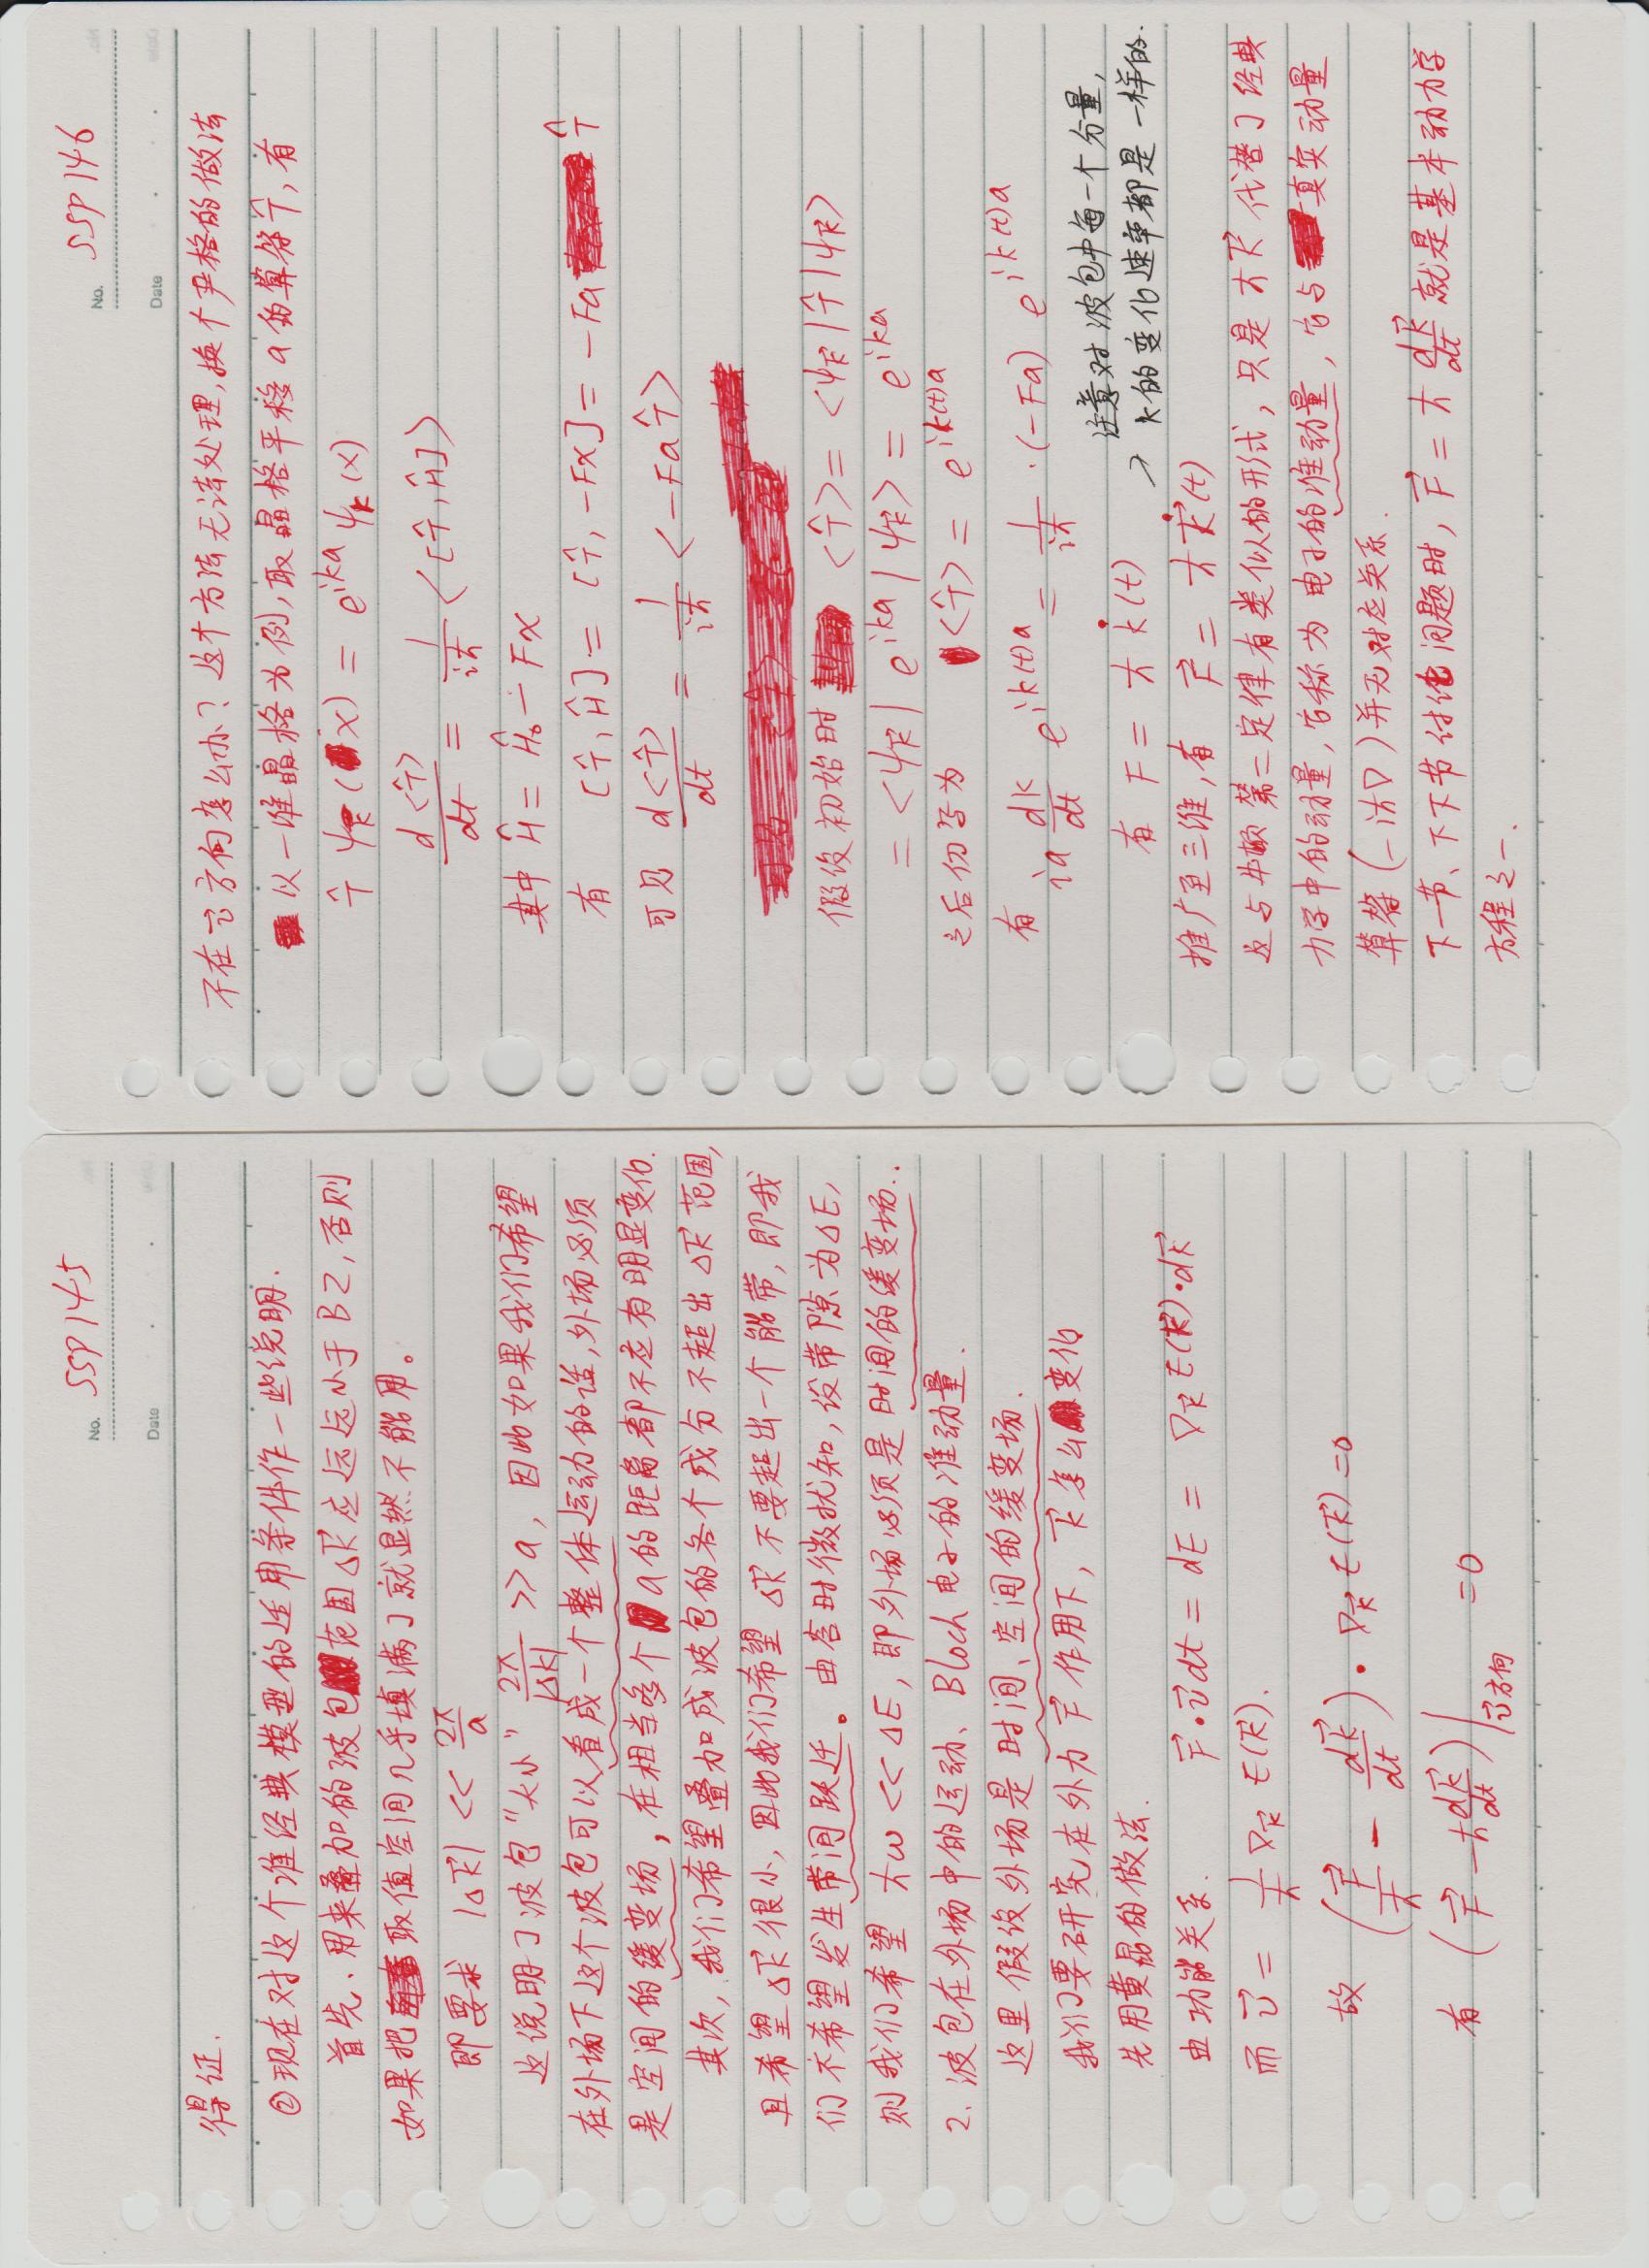 No. SSP145
Date
得证.
②现在对这个准经典模型的适用条件作一些说明.
首先、用来叠加的波包范围Δk⃗应远远小于BZ,否则
如果把取值空间几乎填满了就显然不能用。
即要求 |Δk⃗| << 2π/a
这说明了波包“大小” 2π/|Δk| >> a, 因此如果我们希望
在外场下这个波包可以看成一个整体运动的话,外场必须
是空间的缓变场,在相当多个a的距离都不应有明显变化.
其次,我们希望叠加成波包的各个成分不超出Δk⃗范围,
且希望Δk⃗很小,因此我们希望Δk⃗不要超出一个能带,即我
们不希望发生带间跃迁。由含时微扰知,设带隙为ΔE,
则我们希望 ħω << ΔE, 即外场必须是时间的缓变场..
2. 波包在外场中的运动、Bloch电子的准动量.
这里假设外场是时间、空间的缓变场.
我们要研究在外力F⃗作用下, k⃗怎么变化
先用黄昆的做法.
由功能关系. F⃗·v⃗dt = dE = ∇k⃗ E(k⃗)·dk⃗
而 v⃗ = 1/ħ ∇k⃗ E(k⃗).
故 (F⃗/ħ - dk⃗/dt)·∇k⃗ E(k⃗) = 0
有 (F⃗ - ħ dk⃗/dt)|v⃗方向 = 0
No. SSP146
Date
不在v⃗方向怎么办? 这个方法无法处理,换个严格的做法
以一维晶格为例,取晶格平移a的算符T̂,有
T̂ψk(x) = e^{ika} ψk(x)
d<T̂>/dt = 1/iħ <[T̂,Ĥ]>
其中 Ĥ = Ĥ₀ - Fx
有 [T̂,Ĥ] = [T̂,-Fx] = -Fa T̂
可见 d<T̂>/dt = 1/iħ <-FaT̂>
假设初始时 <T̂> = <ψk⃗|T̂|ψk⃗>
= <ψk⃗| e^{ika} |ψk⃗> = e^{ika}
之后仍写为 <T̂> = e^{ik(t)a}
有 ia dk/dt e^{ik(t)a} = 1/iħ ·(-Fa) e^{ik(t)a}
有 F = ħk̇(t)
→ 注意对波包中每一个分量,
k的变化速率都是一样的.
推广至三维,有 F⃗ = ħk⃗̇(t)
这与牛顿第二定律有类似的形式, 只是ħk⃗代替了经典
力学中的动量, 它称为电子的准动量, 它与真实动量
算符(-iħ∇)并无对应关系.
下一节、下下节讨论问题时, F⃗ = ħ dk⃗/dt 就是基本动力学
方程之一.